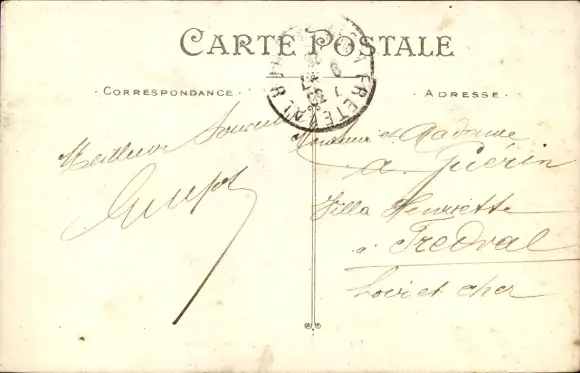 CARTE POSTALE
· CORRESPONDANCE ·
· ADRESSE ·
FRETEVAL
Meilleur Souvenir
Monsieur et Madame
A. Guérin
Villa Henriette
à Fredval
Loir et Cher